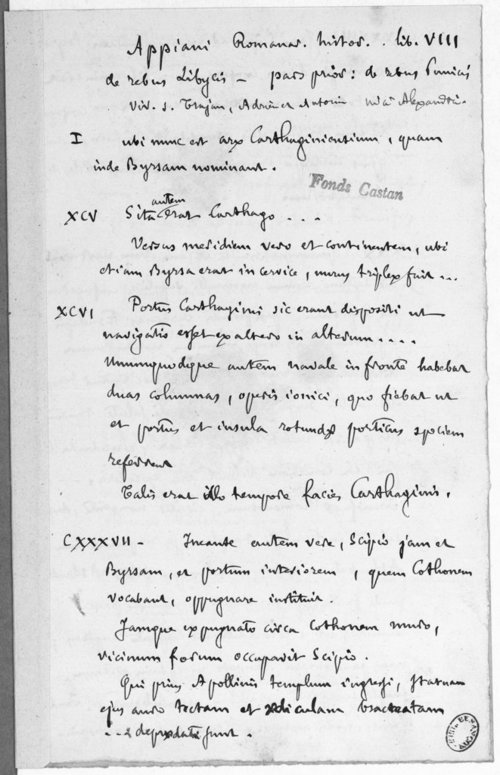 Appiani Romanar. histor. lib. VIII
de rebus Libycis – pars prior: de rebus Punicis
viv. s. Trajan, Adrien et Antonin Alexandri.
I ubi nunc est arx Carthaginientium, quam
inde Byrsam nominant.
Fonds Castan
XCV Sita autem erat Carthago . . .
Versus meridiem vero et continentem, ubi
etiam Byrsa erat in cervice, murus triplex fuit ...
XCVI Portus Carthagini sic erant dispositi ut
navigatio esset ex altero in alterum . . . .
Unumquodque autem navale in fronte habebat
duas columnas, operis ionici, quo fiebat ut
et portus et insula rotundæ porticus speciem
referrent
Talis erat illo tempore facies Carthaginis.
CXXXVII – autem vere, Scipio jam et
Byrsam, et portum interiorem, quem Cothonem
vocabant, oppugnare instituit.
Jamque expugnato circa Cothonem muro,
vicinum forum occupavit Scipio.
Qui prius Apollinis templum ingressi, statuam
ejus auro tectam et ædiculam bracteatam
... deprædati sunt.